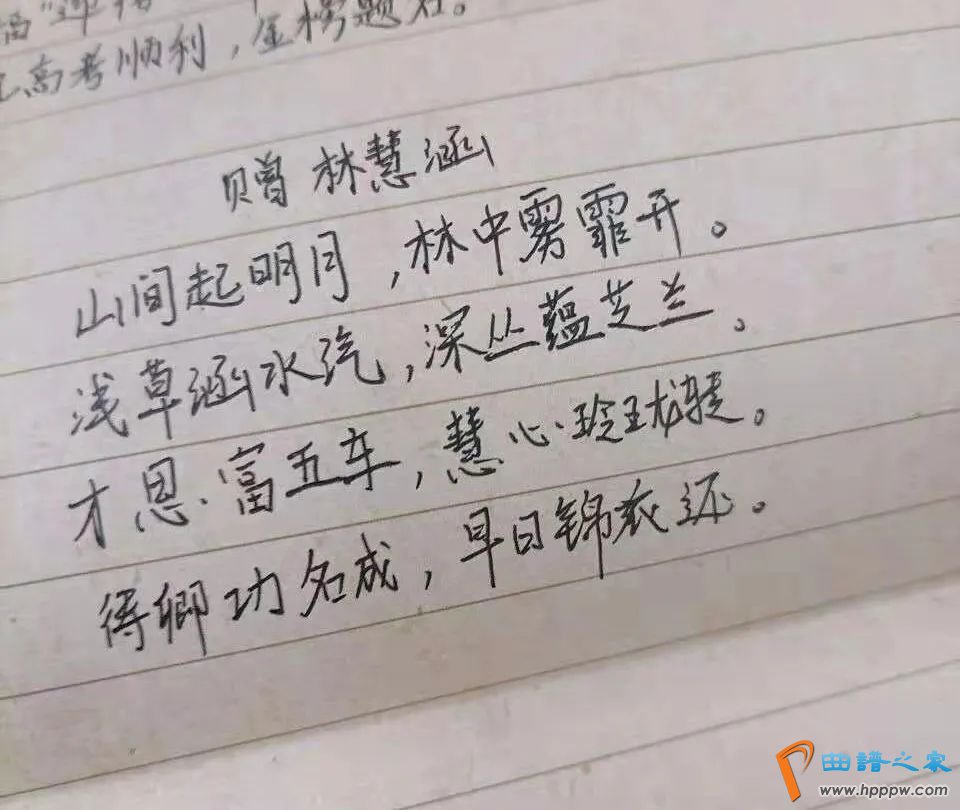 高考顺利，金榜题名。
赠林慧涵
山间起明月，林中雾霏开。
浅草涵水汽，深丛蕴芝兰。
才思富五车，慧心玲珑。
得卿功名成，早日锦衣还。
曲谱之家
www.hppw.com